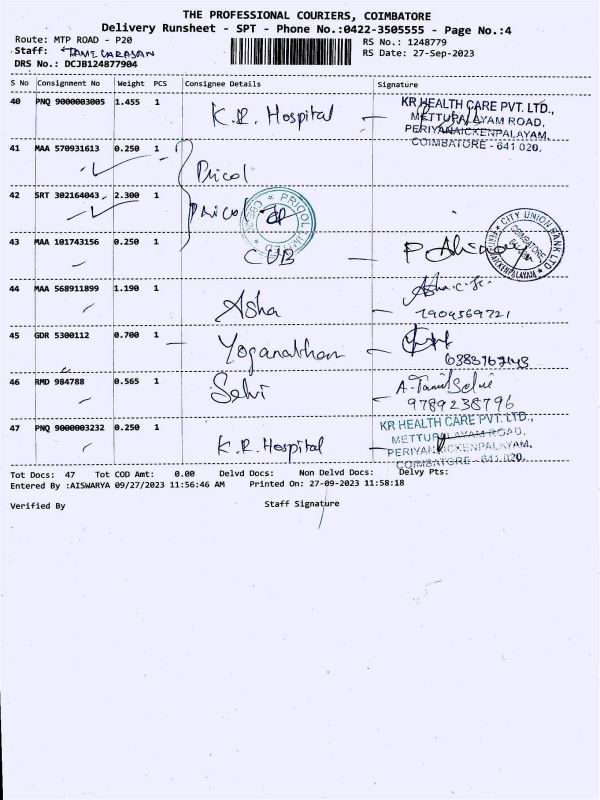 THE PROFESSIONAL COURIERS, COIMBATORE
Delivery Runsheet - SPT - Phone No.:0422-3505555 - Page No.:4
Route: MTP ROAD - P20
RS No.: 1248779
Staff: TAMILVARASAN
RS Date: 27-Sep-2023
DRS No.: DCJB124877904
S No Consignment No Weight PCS Consignee Details Signature
40 PNQ 9000003005 1.455 1 K.R. Hospital KR HEALTH CARE PVT. LTD.,
METTUPALAYAM ROAD,
PERIYANAICKENPALAYAM,
COIMBATORE - 641 020.
41 MAA 570931613 0.250 1 Pricol
42 SRT 302164043 2.300 1 Pricol
43 MAA 101743156 0.250 1 CUB CITY UNION BANK LTD
COIMBATORE
44 MAA 568911899 1.190 1 Asha
7904569721
45 GDR 5300112 0.700 1 Yoganathan
6383167143
46 RMD 984788 0.565 1 Selvi A. Tamil Selvi
9789238796
47 PNQ 9000003232 0.250 1 K.R. Hospital KR HEALTH CARE PVT. LTD.,
METTUPALAYAM ROAD,
PERIYANAICKENPALAYAM,
COIMBATORE - 641 020.
Tot Docs: 47 Tot COD Amt: 0.00 Delvd Docs: Non Delvd Docs: Delvy Pts:
Entered By :AISWARYA 09/27/2023 11:56:46 AM Printed On: 27-09-2023 11:58:18
Verified By Staff Signature